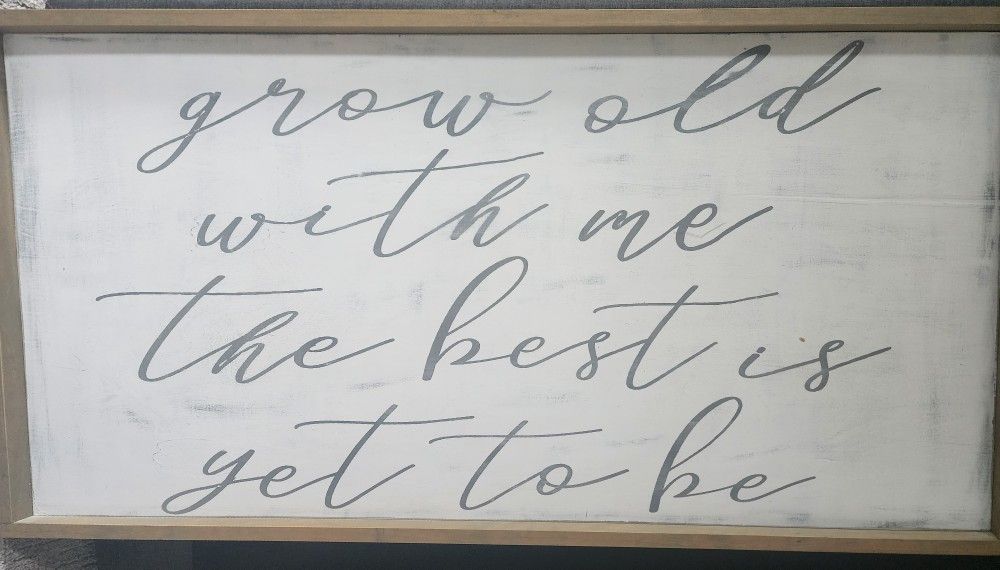 grow old
with me
the best is
yet to be